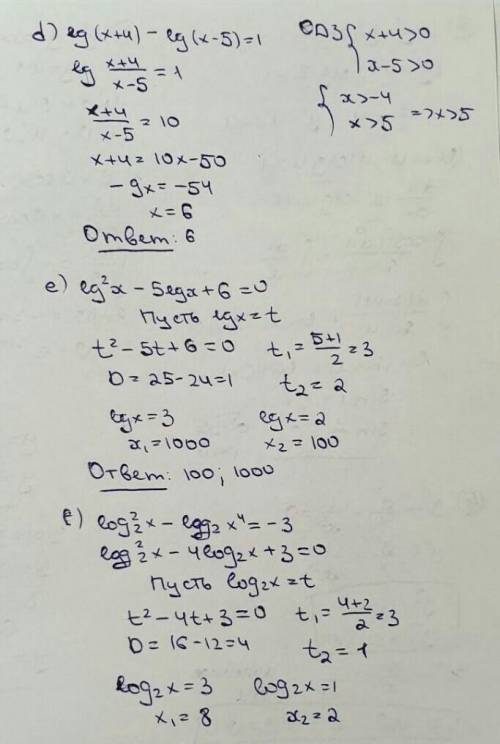 d) lg(x+4) - lg(x-5)=1
ОДЗ { x+4>0
x-5>0
lg (x+4)/(x-5) = 1
{ x>-4
x>5 => x>5
(x+4)/(x-5) = 10
x+4=10x-50
-9x=-54
x=6
Ответ: 6
e) lg²x - 5lgx+6=0
Пусть lgx=t
t²-5t+6=0 t₁=(5+1)/2=3
D=25-24=1 t₂=2
lgx=3 lgx=2
x₁=1000 x₂=100
Ответ: 100; 1000
f) log₂²x - log₂x⁴=-3
log₂²x - 4log₂x+3=0
Пусть log₂x=t
t²-4t+3=0 t₁=(4+2)/2=3
D=16-12=4 t₂=1
log₂x=3 log₂x=1
x₁=8 x₂=2